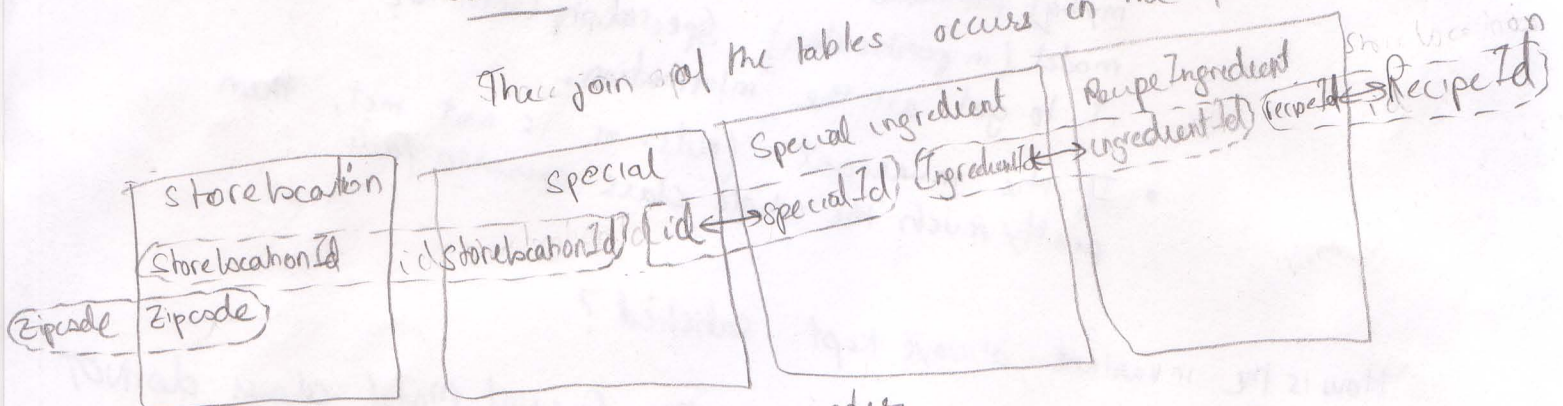 The join of the tables occurs in
storelocation
storelocationId
Zipcode Zipcode
special
id storelocationId id
special ingredient
specialId IngredientId
RecipeIngredient
ingredientId recipeId
RecipeId
storelocation